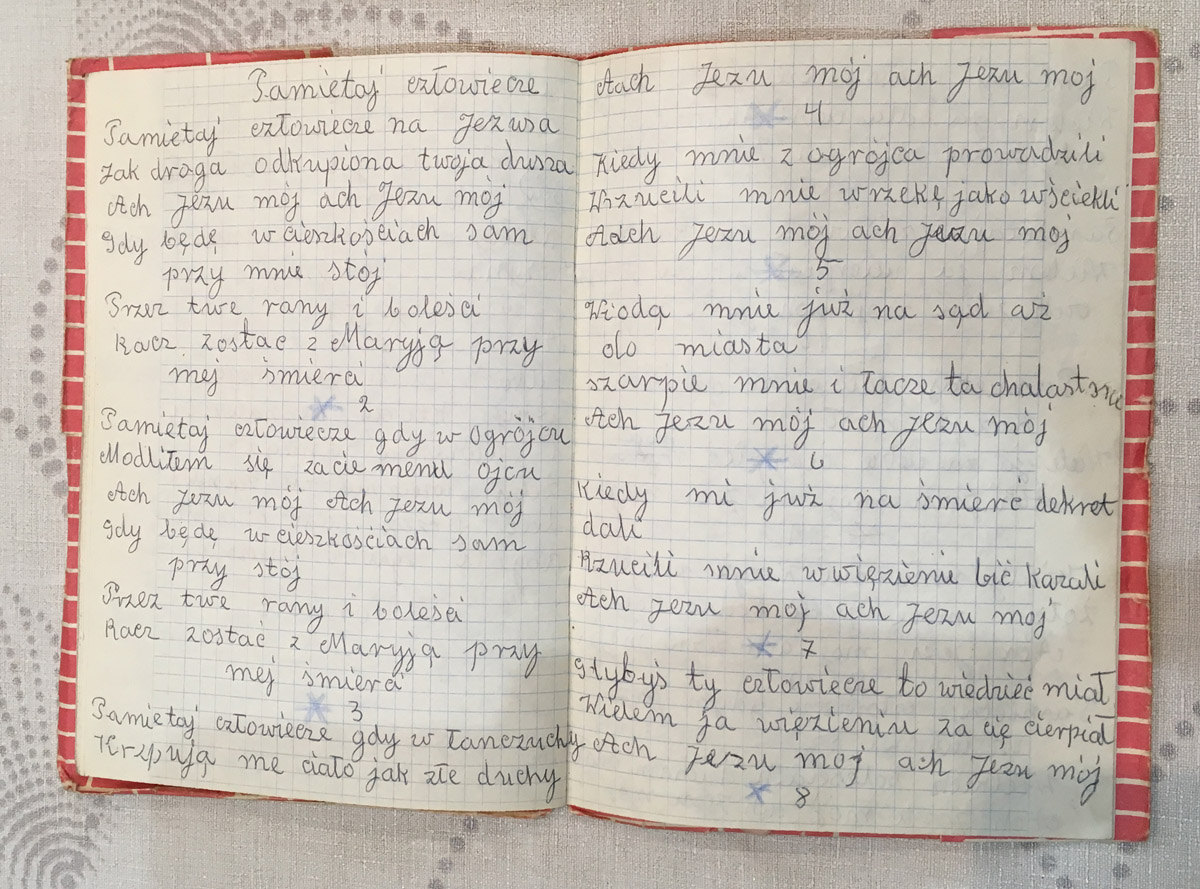 Pamiętaj człowiecze
Pamiętaj człowiecze na Jezusa
Jak droga odkupiona twoja dusza
Ach Jezu mój ach Jezu mój
gdy będę w cieszkościach sam
przy mnie stój
Przez twe rany i boleści
Racz zostać z Maryją przy
mej śmierci
2
Pamiętaj człowiecze gdy w Ogrójcu
Modliłem się zacie memu ojcu
Ach Jezu mój Ach Jezu mój
gdy będę w cieszkościach sam
przy stój
Przez twe rany i boleści
Racz zostać z Maryją przy
mej śmierci
3
Pamiętaj człowiecze gdy w łanczuchy
Krzpują me ciało jak złe duchy
Aach Jezu mój ach Jezu moj
4
Kiedy mnie z ogrójca prowadzili
Wrzucili mnie w rzekę jako wściekli
Aach Jezu mój ach Jezu moj
5
Wiodą mnie już na sąd aż
do miasta
szarpie mnie i łacze ta chalastrze
Ach Jezu mój ach Jezu mój
6
Kiedy mi już na śmierć dekret
dali
Rzucili mnie w więzienie bić kazali
Ach Jezu moj ach Jezu moj
7
gdybyś ty człowiecze to wiedzieć miał
Wielem ja więzieniu za cię cierpiał
Ach Jezu moj ach Jezu mój
8